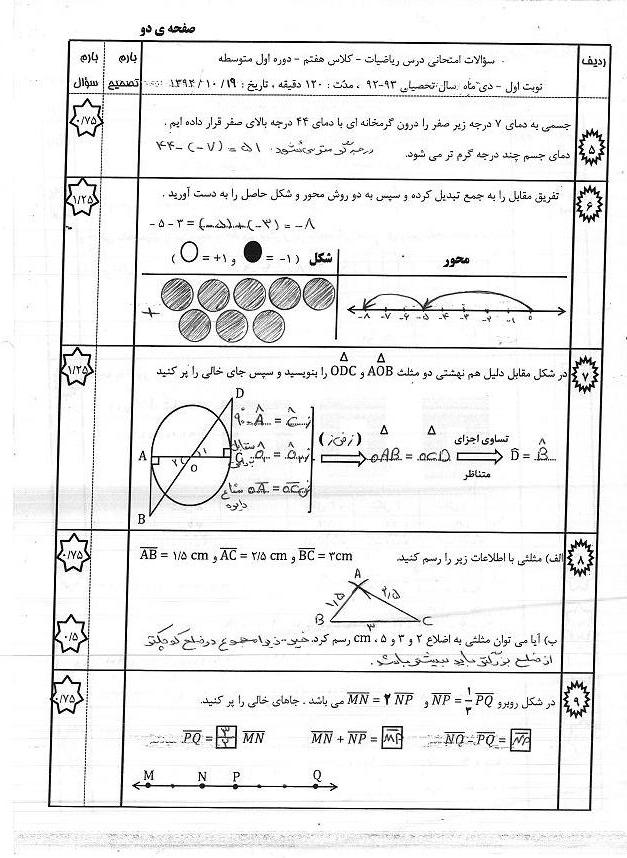 صفحه ی دو
ردیف
سؤالات امتحانی درس ریاضیات - کلاس هفتم - دوره اول متوسطه
نوبت اول - دی ماه سال تحصیلی ۹۳-۹۲ ، مدت : ۱۲۰ دقیقه ، تاریخ : ۱۹ / ۱۰ / ۱۳۹۲
بارم تصحیح
بارم سؤال
۵
جسمی به دمای ۷ درجه زیر صفر را درون گرمخانه ای با دمای ۴۴ درجه بالای صفر قرار داده ایم .
دمای جسم چند درجه گرم تر می شود.
۴۴-(-۷) = ۵۱ درجه گرم تر می شود.
۰/۷۵
۶
تفریق مقابل را به جمع تبدیل کرده و سپس به دو روش محور و شکل حاصل را به دست آورید .
۱/۲۵
-۵ - ۳ = (-۵)+(-۳) = -۸
محور
شکل ( ● = -۱ و ○ = +۱ )
-۸ -۷ -۶ -۵ -۴ -۳ -۲ -۱ ۰
+
۷
در شکل مقابل دلیل هم نهشتی دو مثلث AOB و ODC را بنویسید و سپس جای خالی را پر کنید
۱/۲۵
A B C D O
۱ ۲
۹۰° Â = Ĉ ز
متقابل برأس Ô۱ = Ô۲ ز
شعاع دایره OA = OC ض
(ز ض ز)
OAB = OCD
تساوی اجزای متناظر
D̂ = B̂
۸
الف) مثلثی با اطلاعات زیر را رسم کنید. BC = ۳cm و AC = ۲/۵ cm و AB = ۱/۵ cm
۰/۷۵
A
۱/۵ ۲/۵
B ۳ C
ب) آیا می توان مثلثی به اضلاع ۲ و ۳ و ۵ ، cm رسم کرد. خیر - زیرا مجموع دو ضلع کوچکتر
از ضلع بزرگتر باید بیشتر باشد.
۰/۵
۹
در شکل روبرو NP = ۱/۳ PQ و MN = ۲ NP می باشد . جاهای خالی را پر کنید.
۰/۷۵
NQ - PQ = NP
MN + NP = MP
PQ = ۳/۲ MN
M N P Q